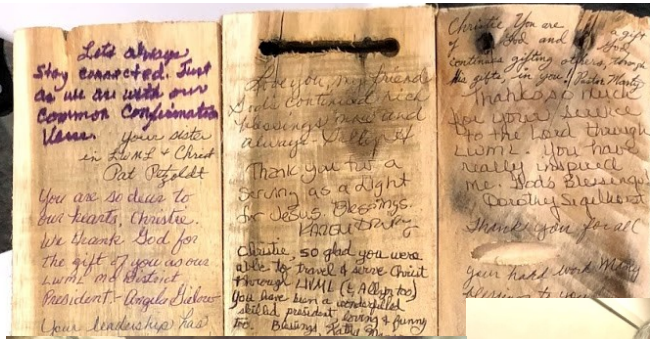 Lets always
Stay connected. Just
as we are with our
Common Confirmation
Verse.
your sister
in LWML & Christ
Pat Petzoldt
You are so dear to
our hearts, Christie.
We thank God for
the gift of you as our
LWML MO District
President - Angela
Your leadership has
Love you, my friend
God's continued rich
blessings now and
always -
Thank you for
serving as a Light
for Jesus. Blessings.
Karen
Christie, so glad you were
able to travel & serve Christ
through LWML (& Allyn too)
You have been a wonderful
skilled president, loving & funny
too. Blessings, Kathy
Christie, You are a gift
of God and God
continues gifting others, through
His gifts, in you! Pastor Marty
Thanks so much
for your service
to the Lord through
LWML. You have
really inspired
me. God's Blessings!
Dorothy
Thank you for all
your hard work Many
blessings to you